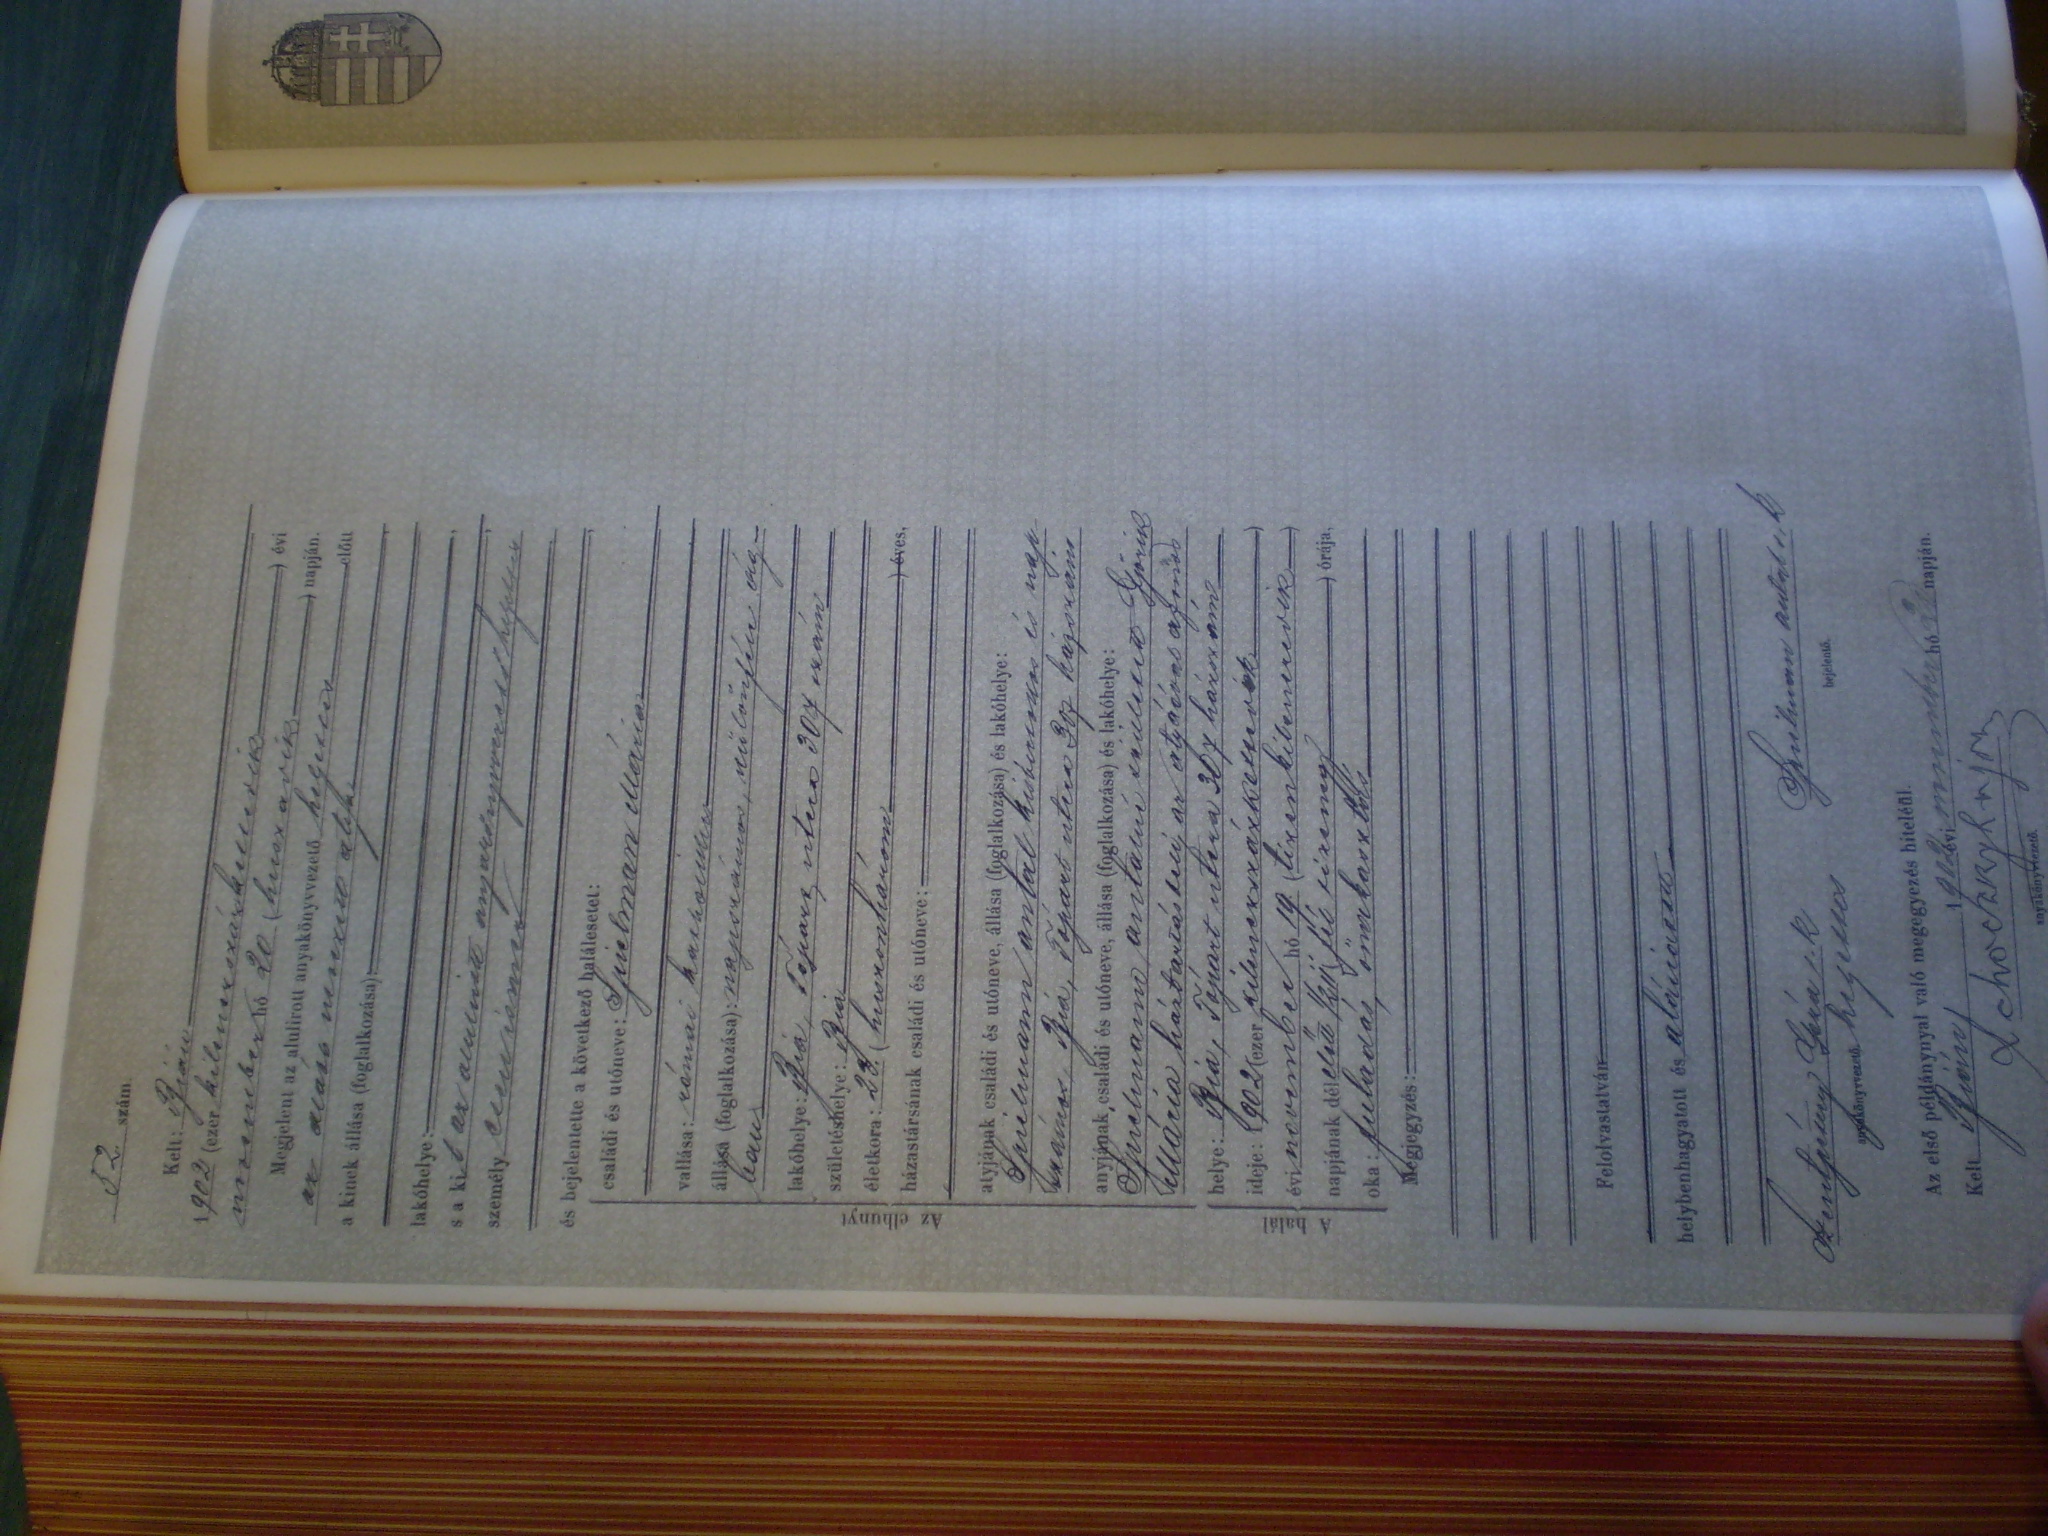 82 szám.
Kelt: Bián
1902 (ezer kilenczszázkettedik) évi
november hó 20 (huszadik) napján.
Megjelent az alulirott anyakönyvvezető helyettes előtt
az alább nevezett atyja
a kinek állása (foglalkozása):
lakóhelye:
s a ki, t az alulirott anyakönyvvezető helyettes
személyesen ismer
és bejelentette a következő halálesetet:
Az elhunyt
családi és utóneve: Spielman Mária
vallása: római katholikus
állása (foglalkozása): napszámos, különféle ág-
ban
lakóhelye: Bia, Tópart utcza 307 szám
születéshelye: Bia
életkora: 23 (huszonhárom) éves.
házastársának családi és utóneve:
atyjának családi és utóneve, állása (foglalkozása) és lakóhelye:
Spielmann Antal kisbirtokos és nap
számos, Bia, Tópart utcza 307 házszám
anyjának családi és utóneve, állása (foglalkozása) és lakóhelye:
Spielmann Antalné született
Mária háztartásbeli
A halál
helye: Bia, Tópart utcza 307 házszám
ideje: 1902 (ezer kilenczszázkettedik)
évi november hó 19 (tizenkilenczedik)
napjának délelőtt órája.
oka: fuladás, önakasztás
Megjegyzés:
Felolvastatván
helybenhagyatott és aláiratott
Spielmann Antal s. k.
bejelentő.
Szentgyörgy Géza s. k.
anyakönyvvezető helyettes
Az első példánynyal való megegyezés hiteléül.
Kelt Bián, 1902 évi november hó napján.
anyakönyvvezető.